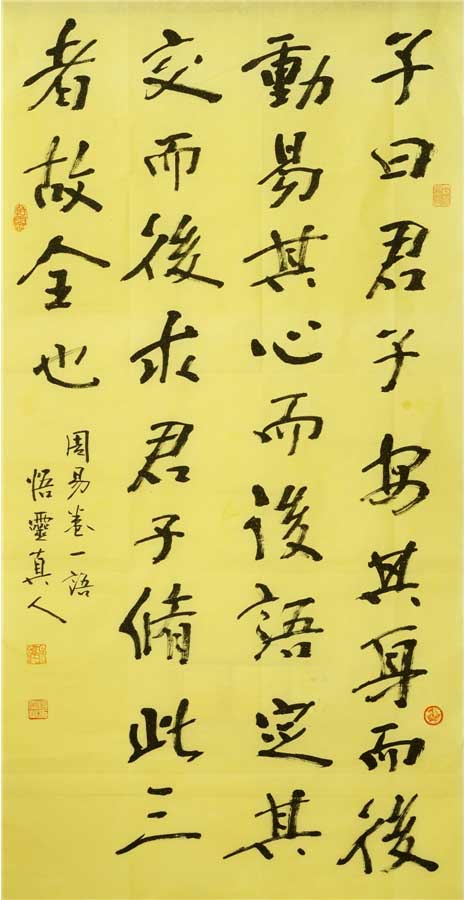 子曰君子安其身而後
動易其心而後語定其
交而後求君子脩此三
者故全也
周易卷一語
悟靈真人